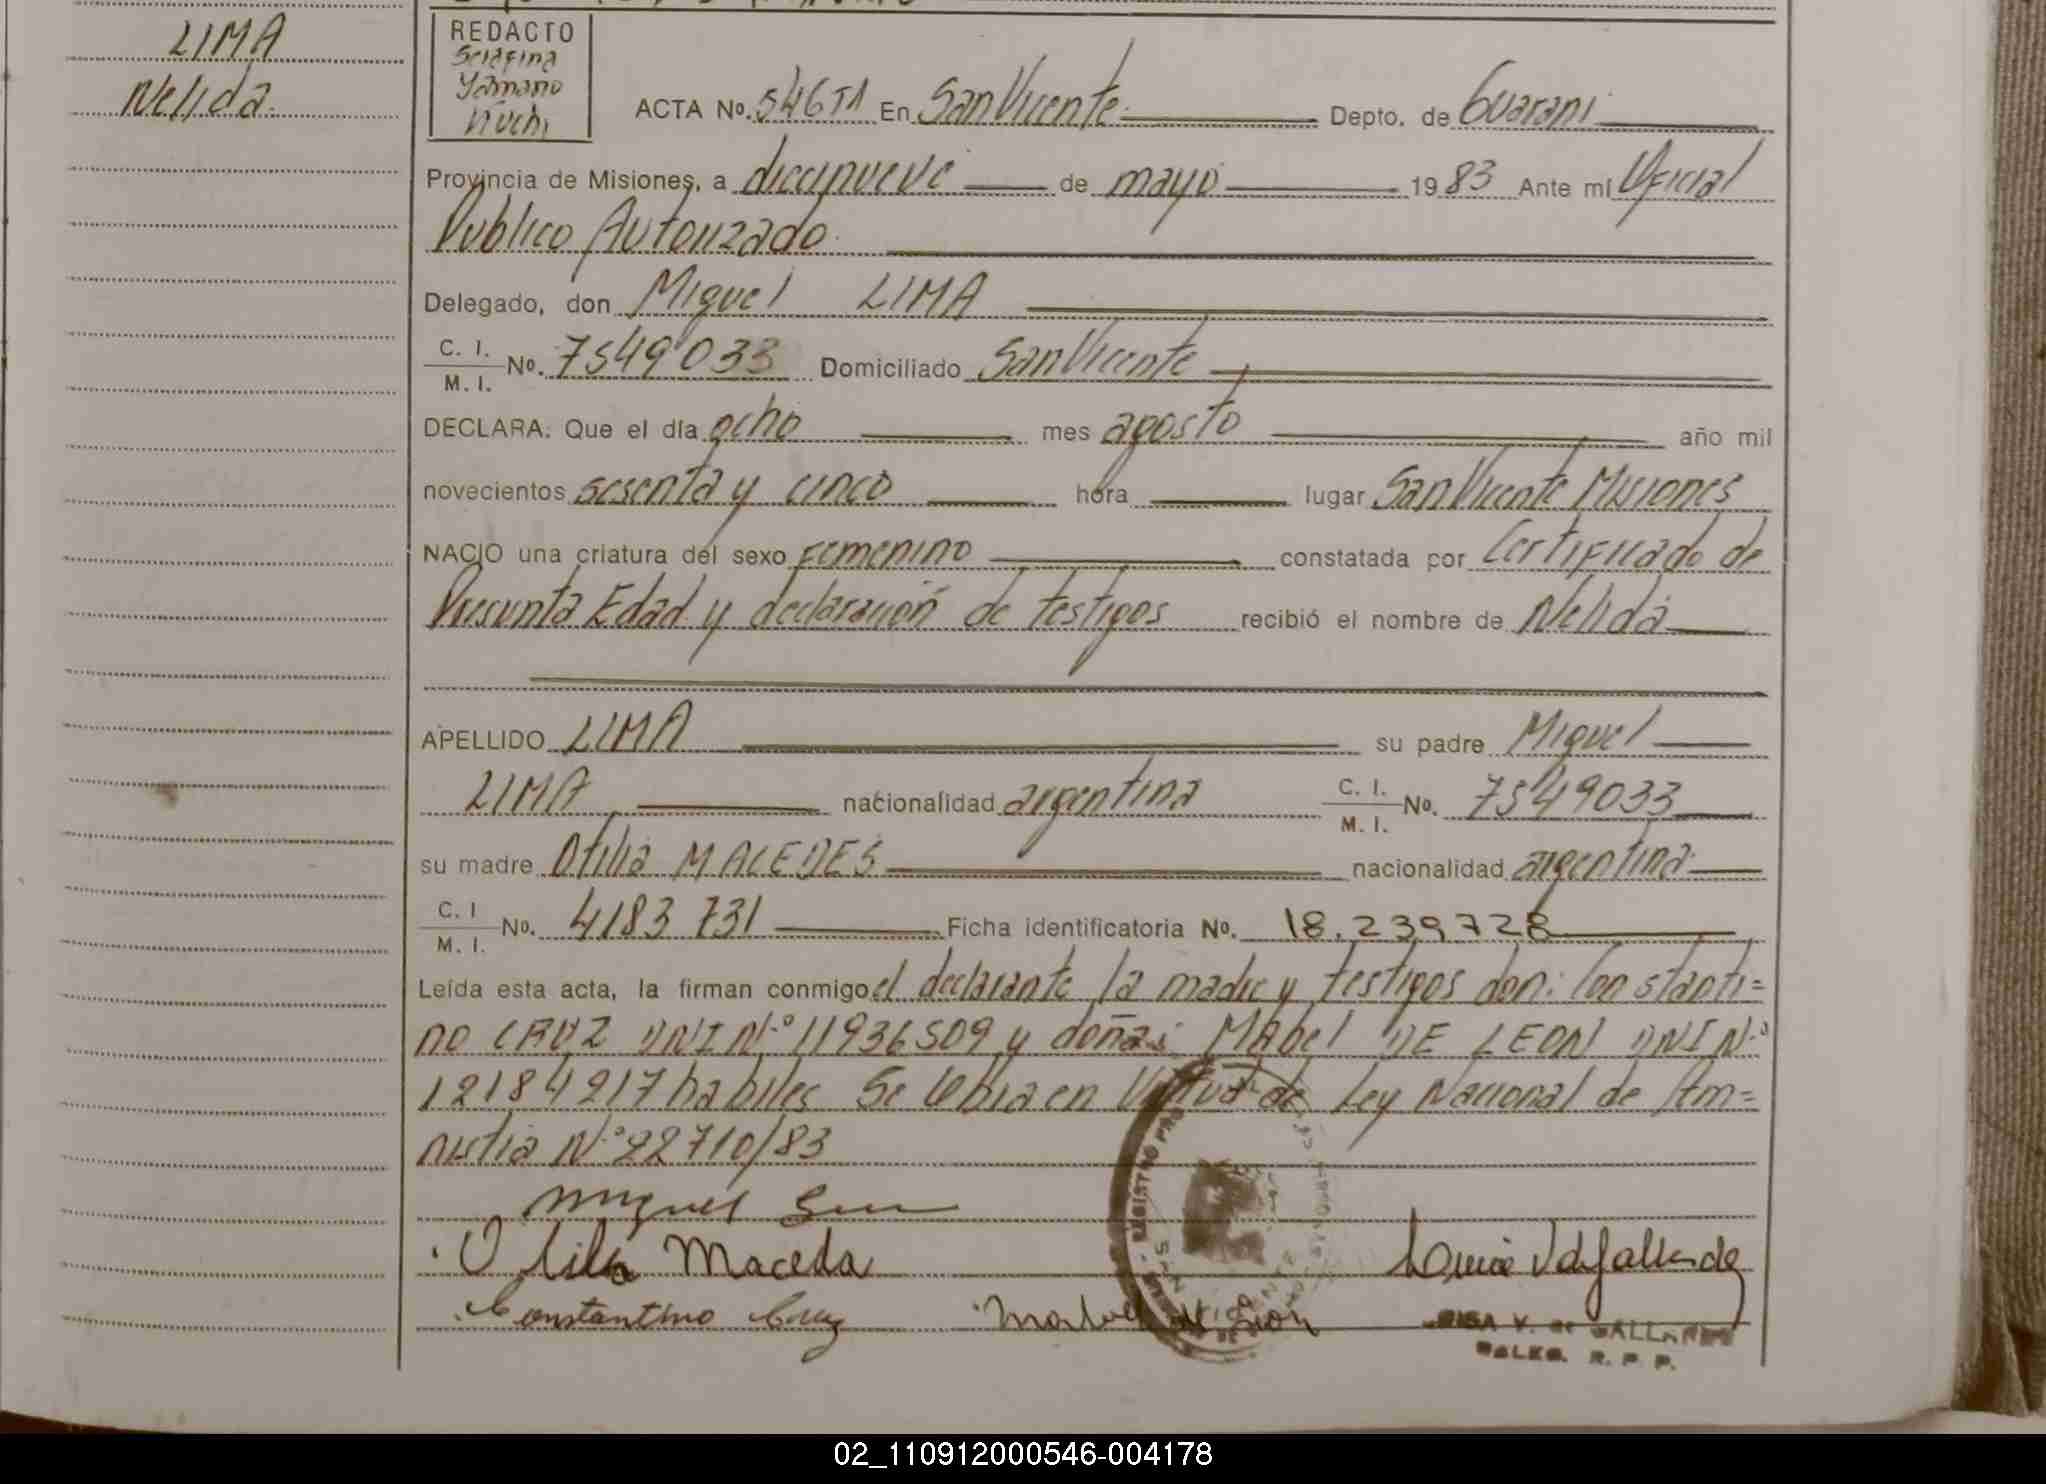 LIMA
Nelida.
REDACTO
Serafina
Yamano
Kiuchi
ACTA No. 546 T1 En San Vicente Depto. de Guarani
Provincia de Misiones, a diecinueve de mayo 1983 Ante mí Oficial
Publico Autorizado.
Delegado, don Miguel LIMA
C. I. M. I. No. 7549033 Domiciliado San Vicente
DECLARA: Que el día ocho mes agosto año mil
novecientos sesenta y cinco hora lugar San Vicente Misiones
NACIO una criatura del sexo Femenino constatada por Certificado de
Presunta Edad y declaración de testigos recibió el nombre de Nelida
APELLIDO LIMA su padre Miguel
LIMA nacionalidad argentina C. I. M. I. No. 7549033
su madre Otilia MACEDES nacionalidad argentina
C. I M. I. No. 4183 731 Ficha identificatoria No. 18.239728
Leída esta acta, la firman conmigo el declarante la madre y testigos don: Constanti=
no CRUZ DNI N.º 11936509 y doña: Mabel DE LEON DNI N.º
12184217 habiles Se labra en Virtud de Ley Nacional de Am=
nistia N.º 22710/83
Miguel
Otilia Maceda
Constantino Cruz
R. P. P.
02_110912000546-004178